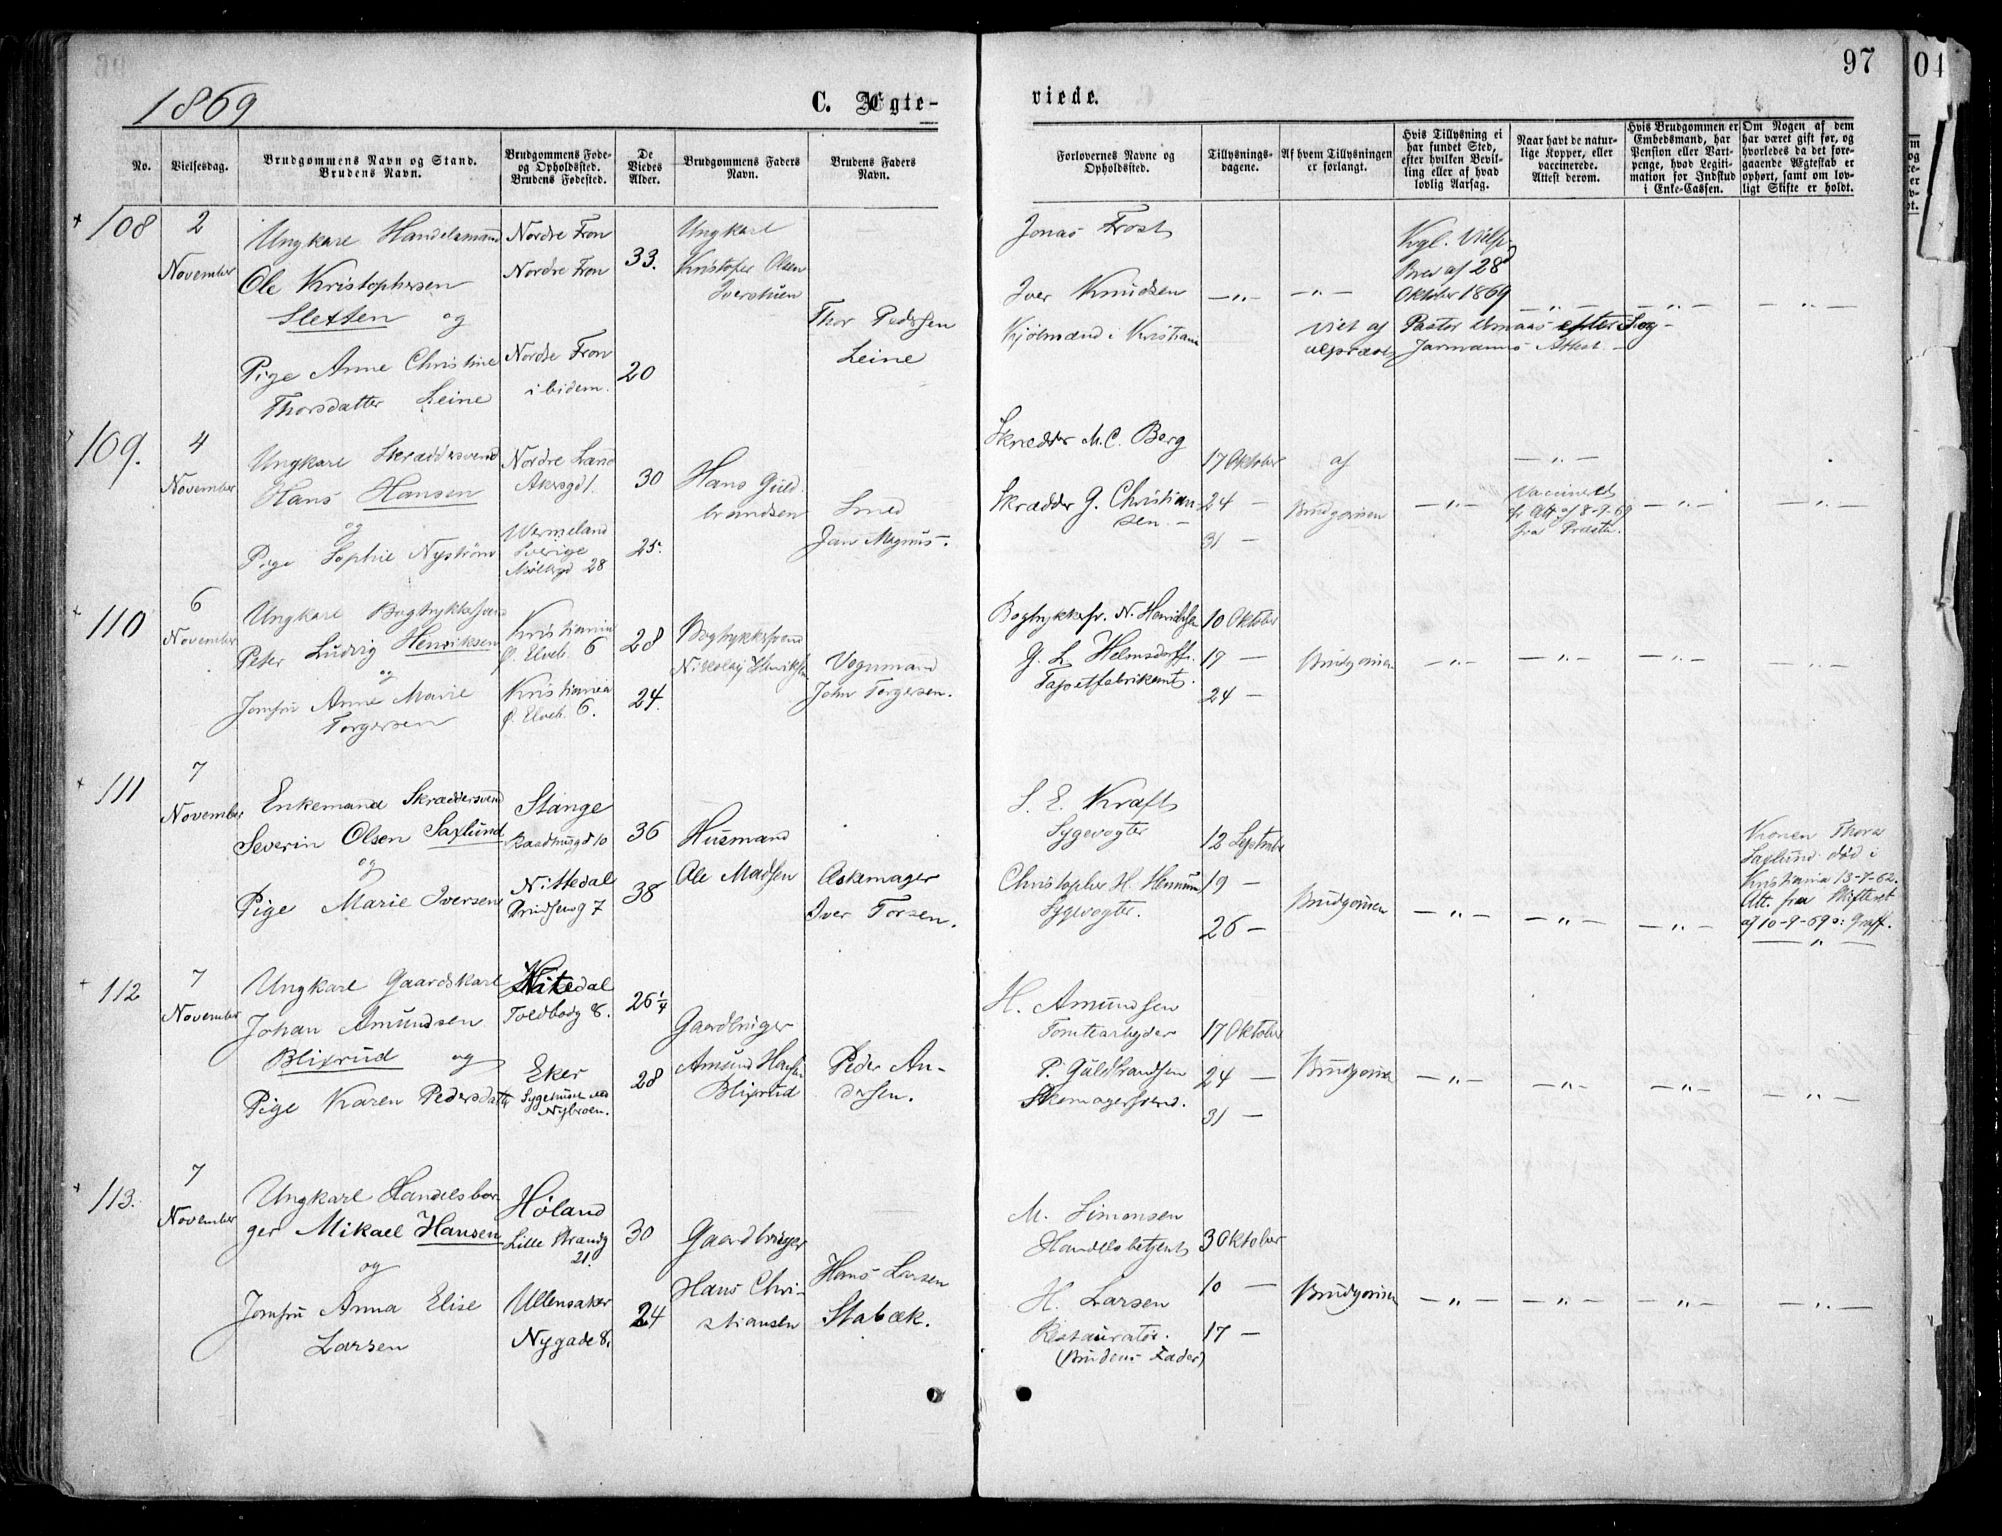 97
04
1869
C. Ægte-
viede.
No.
Vielsesdag.
Brudgommens Navn og Stand.
Brudens Navn.
Brudgommens Føde-
og Opholdssted.
Brudens Fødested.
De
Viedes
Alder.
Brudgommens Faders
Navn.
Brudens Faders
Navn.
Forlovernes Navne og
Opholdssted.
Tillysnings-
dagene.
Af hvem Tillysningen
er forlangt.
Hvis Tillysning ei
har fundet Sted,
efter hvilken Bevil-
ling eller af hvad
lovlig Aarsag.
Naar havt de natur-
lige Kopper, eller
vaccinerede.
Attest derom.
Hvis Brudgommen er
Embedsmand, har
Pension eller Vart-
penge, hvad Legiti-
mation for Indskud
i Enke-Cassen.
Om Nogen af dem
har været gift før, og
hvorledes da det fore-
gaaende Ægteskab er
ophørt, samt om lov-
ligt Skifte er holdt.
108
2
November
Ungkarl Handelsmand
Ole Kristophersen
Sletten og
Pige Anne Christine
Thorsdatter Leine
Nordre Fron
Nordre Fron
Nordre Fron
ibidem.
33.
20
Ungkarl
Kristofer Olsen
Thor Pedersen
Leine
Jonas Frost
Iver Knudsen
Kjølmænd i Kristiania
—„—
—„—
Kgl.
Brev af 28
Oktober 1869
—„—
—„—
—„—
Viet af Pastor efter Sog-
Attest —
109.
4
November
Ungkarl Skræddersvend
Hans Hansen
og
Pige Sophie Nystrøm
Nordre Land
Akersgd 1.
Wermeland
Sverige
Møllergd 28
30
25.
Hans Guld-
brandsen
Smed
Jan Magnus.
Skrædder M. C. Berg
Skrædder G. Christian-
sen. —
17 Oktober
24 —
31 —
af
Brudgommen
—„—
—„—
Vaccineret
Att. af 8-9-69
fra Præsten.
—„—
—„—
110
6
November
Ungkarl Bogtrykkersvend
Peter Ludvig Henriksen
og
Jomfru Anne Marie
Torgersen
Kristiania
Ø. Elveb. 6
Kristiania
Ø. Elveb. 6.
28
24.
Bogtrykkersvend
Nikolay Henriksen
Vognmand
John Torgersen.
Bogtrykkersv. N. Henriksen
G. L. Helmsdorff.
Tapetfabrikant.
10 Oktober
17 —
24 —
Brudgommen
—„—
—„—
—„—
—„—
111
7
November
Enkemand Skræddersvend
Severin Olsen Saxlund
og
Pige Marie Iversen
Stange
Raadhusgd 10
Nittedal
Prindsensg 7
36
38
Husmand
Ole Madsen
Askemager
Iver Torsen.
S. E. Kraft
Sygevogter
Christopher H. Hennum
Sygevogter.
12 Septembr
19 —
26 —
Brudgommen
—„—
—„—
—„—
Konen Thora
Saxlund død i
Kristiania 13-7-62.
Att. fra Skifteret
af 10-9-69 Graff.
—„—
112
7
November
Ungkarl Gaardskarl
Johan Amundsen
Blixrud og
Pige Karen Pedersdatter
Nitedal
Toldbodg 8.
Eker
Sygehuset ved
Nybroen.
26 1/4
28
Gaardbruger
Amund Hansen
Blixrud
Peder An-
dersen.
H. Amundsen
Tomtearbeider
P. Guldbrandsen
Skomagersvend.
17 Oktober
24 —
31 —
Brudgommen
—„—
—„—
—„—
—„—
113.
7
November
Ungkarl Handelsbor-
ger Mikael Hansen
og
Jomfru Anna Elise
Larsen
Høland
Lille Strandg
21.
Ullensaker
Nygade 8.
30
24
Gaardbruger
Hans Chri-
stiansen
Hans Larsen
Stabæk.
M. Simensen
Handelsbetjent
H. Larsen
Restauratør.
(Brudens Fader)
3 Oktober
10 —
17 —
Brudgommen
—„—
—„—
—„—
—„—